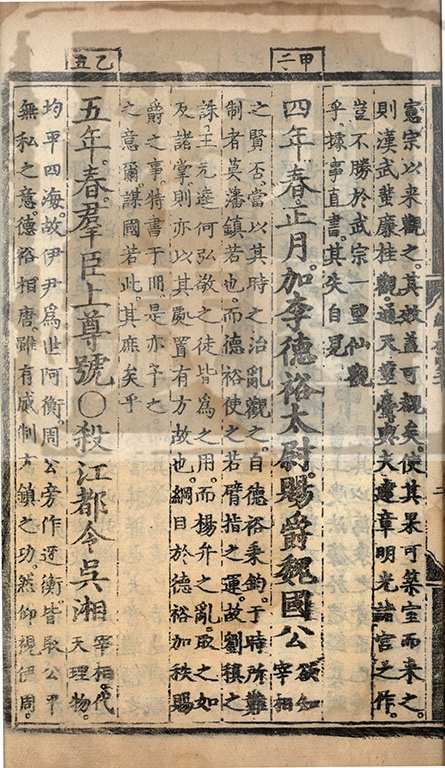 甲二
憲宗以来觀之其效蓋可覩矣使其果可築室而来之
則漢武蜚廉桂觀通天臺與夫建章明光諸宮之作
豈不勝於武宗一望仙觀
乎據事直書其失自見
四年春正月加李德裕太尉賜爵魏國公欲知宰相
之賢否當以其時之治亂觀之自德裕秉鈞于時所難
制者莫潘鎮若也而德裕使之若臂指之運故劉稹之
誅王元逵何弘敬之徒皆爲之用而楊弁之亂取之如
及諸掌則亦以其處置有方故也綱目於德裕加秩賜
爵之事特書于冊是亦予之
之意爾謀國若此其庶矣乎
乙丑
五年春羣臣上尊號○殺江都令吳湘宰相代天理物
均平四海故伊尹爲世阿衡周公旁作迓衡皆取公平
無私之意德裕相唐雖有威制方鎮之功然仰視伊周